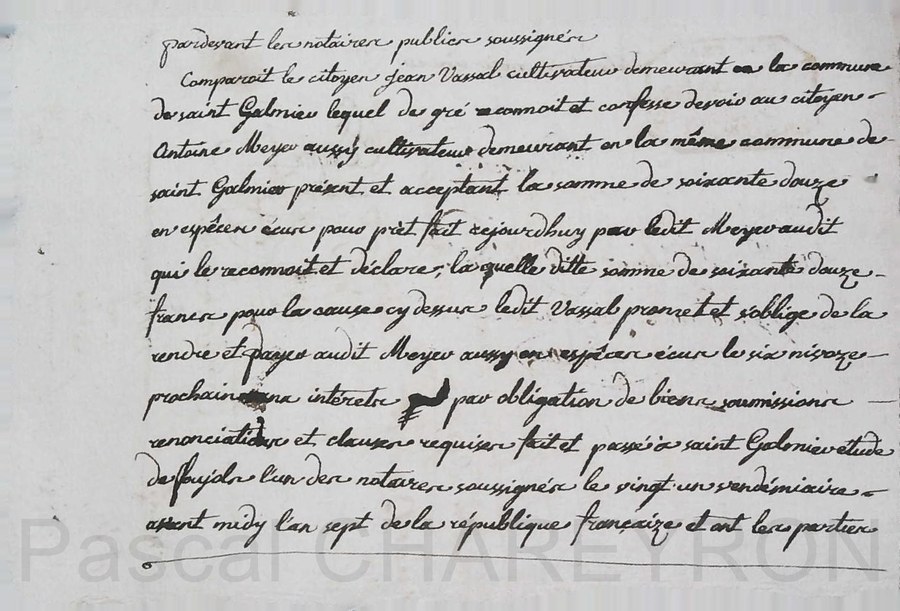 pardevant les notaires publics soussignés
Comparoit le citoyen Jean Vassal cultivateur demeurant en la commune
de saint Galmier lequel de gré reconnoit et confesse devoir au citoyen
Antoine Meyer aussÿ cultivateur demeurant en la même commune de
saint Galmier présent et acceptant la somme de soixante douze
en espêces écus pour prèt fait cejourdhuy par ledit Meyer audit
qui le reconnoit et déclare, la quelle ditte somme de soixante douze
francs pour la cause cy dessus ledit Vassal promet et s'oblige de la
rendre et payer audit Meyer aussy en espêces écus le six nivoze
prochain sans intèrets par obligation de biens soumissions
renonciations et clauses requises fait et passé à saint Galmier étude
de l'un des notaires soussignés le vingt un vendémiaire
avant midy l'an sept de la république françaize et ont les parties
Pascal CHAREYRON